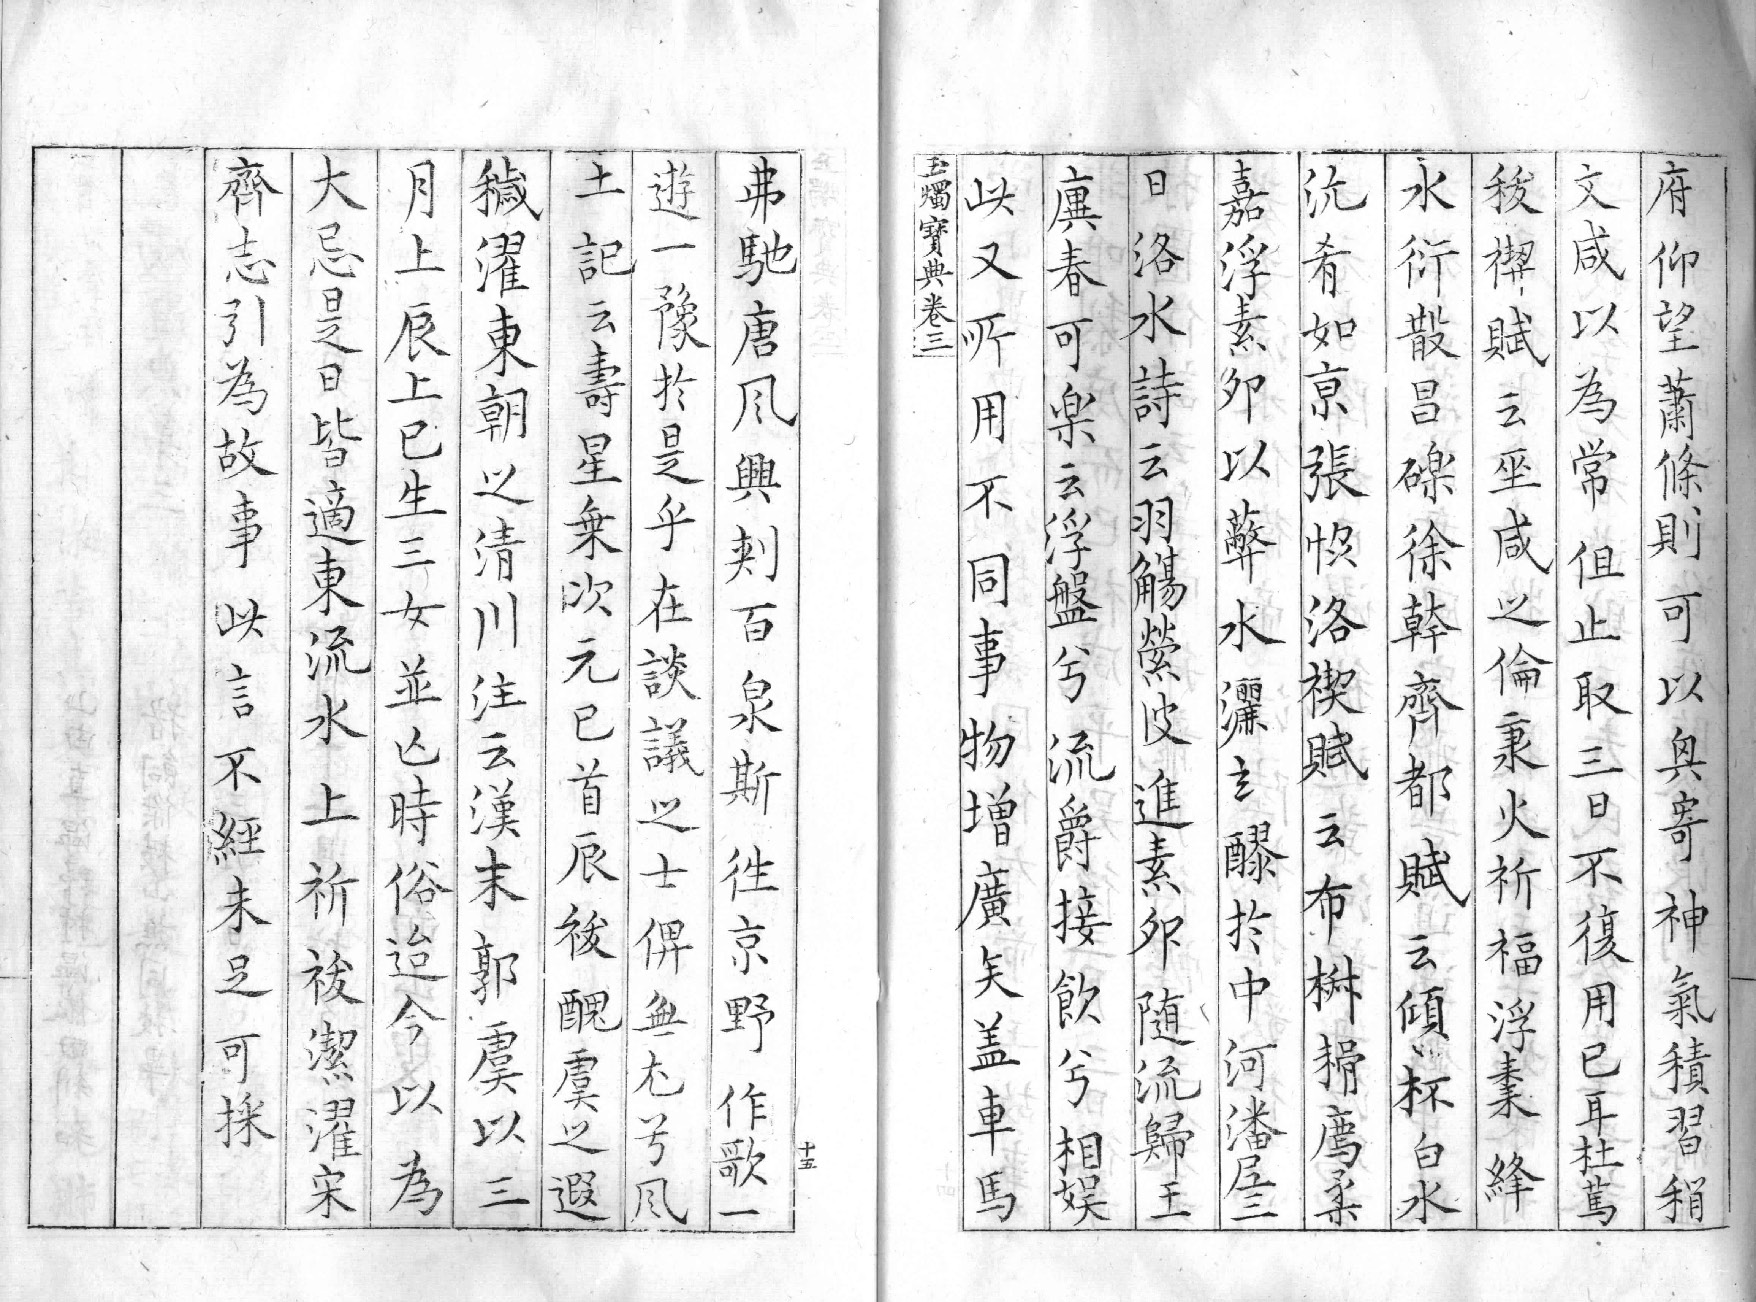 府仰望蕭條則可以奥寄神氣積習稍
文咸以為常但止取三日不復用巳耳杜篤
祓禊賦云巫咸之倫秉火祈福浮棗絳
水衍散昌礫徐幹齊都賦云傾杯白水
沆肴如京張惔洛禊賦云布樹捐薦柔
嘉浮素卵以蔽水灑玄醪於中河潘尼三
日洛水詩云羽觴縈波進素卵隨流歸王
廙春可楽云浮盤兮流爵接飲兮相娱
此又所用不同事物増廣矣盖車馬
玉燭寶典卷三
弗馳唐風興刾百泉斯徃京野作歌一
遊一豫於是乎在談議之士俾無尤兮風
土記云壽星乗次元巳首辰祓醜虞之遐
穢濯東朝之清川注云漢末郭虞以三
月上辰上巳生三女並亡時俗迨今以為
大忌是日皆適東流水上祈祓潔濯宋
齊志引為故事此言不經未足可採
十五